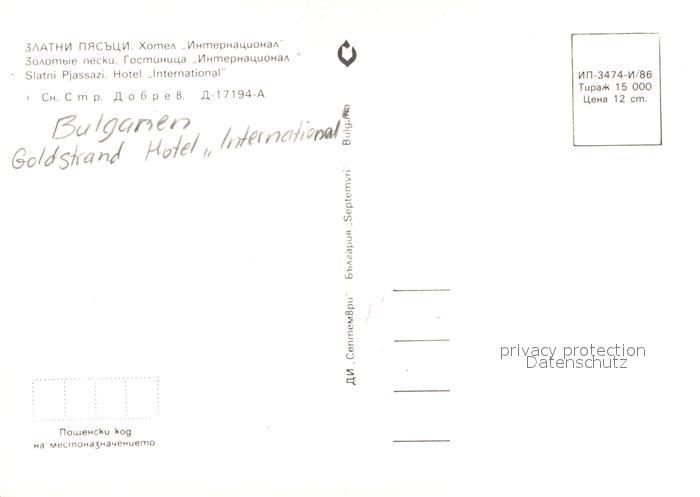 ЗЛАТНИ ПЯСЪЦИ. Хотел „Интернационал"
Золотые пески. Гостиница „Интернационал"
Slatni Pjassazi. Hotel „International"
Сн. Стр. Добрев. Д-17194-А
Bulgarien
Goldstrand Hotel „International"
ДИ „Септември" България „Septemvri" Bulgaria
ИП-3474-И/86
Тираж 15 000
Цена 12 ст.
privacy protection
Datenschutz
Пощенски код
на местоназначението